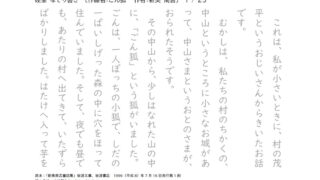 これは、私が小さいときに、村の茂
平というおじいさんからきいたお話
です。
むかしは、私たちの村のちかくの、
中山というところに小さなお城があ
って、中山さまというおとのさまが、
おられたそうです。
その中山から、少しはなれた山の中
に、「ごん狐」という狐がいました。
ごんは、一人ぼっちの小狐で、しだの
一ぱいしげった森の中に穴をほって
住んでいました。そして、夜でも昼で
も、あたりの村へ出てきて、いたずら
ばかりしました。はたけへ入って芋を
底本:「新美南吉童話集」岩波文庫、岩波書店 1996(平成8)年7月16日発行第1刷